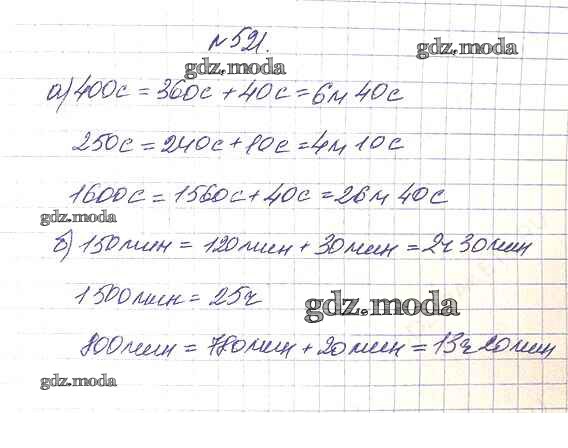 №521.
gdz.moda
gdz.moda
а) 400с = 360с + 40с = 6м 40с
250с = 240с + 10с = 4м 10с
1600с = 1560с + 40с = 26м 40с
gdz.moda
б) 150мин = 120мин + 30мин = 2ч 30мин
1500мин = 25ч
gdz.moda
800мин = 780мин + 20мин = 13ч 20мин
gdz.moda